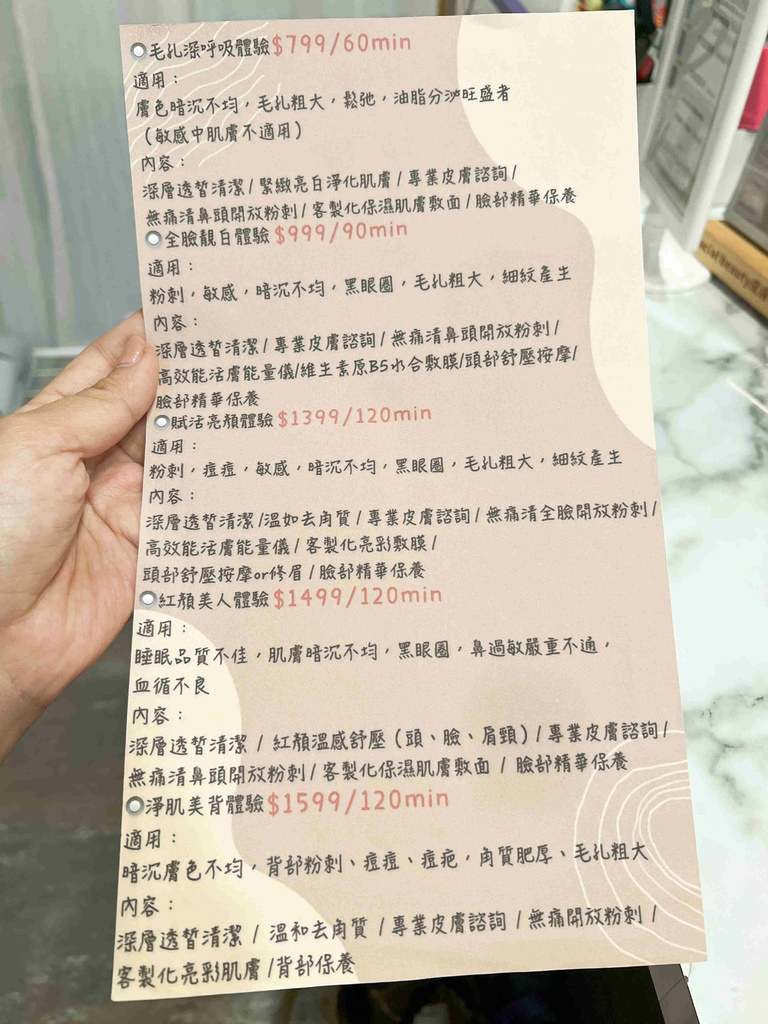 毛孔深呼吸體驗$799/60min
適用：
膚色暗沉不均，毛孔粗大，鬆弛，油脂分泌旺盛者
（敏感中肌膚不適用）
內容：
深層透皙清潔/緊緻亮白淨化肌膚/專業皮膚諮詢/
無痛清鼻頭開放粉刺/客製化保濕肌膚敷面/臉部精華保養
全臉靚白體驗 $999/90min
適用：
粉刺，敏感，暗沉不均，黑眼圈，毛孔粗大，細紋產生
內容：
深層透皙清潔/專業皮膚諮詢/無痛清鼻頭開放粉刺/
高效能活膚能量儀/維生素原B5水合敷膜/頭部舒壓按摩/
臉部精華保養
賦活亮顏體驗$1399/120min
適用：
粉刺，痘痘，敏感，暗沉不均，黑眼圈，毛孔粗大，細紋產生
內容：
深層透皙清潔/溫如去角質/專業皮膚諮詢/無痛清全臉開放粉刺/
高效能活膚能量儀/客製化亮彩敷膜/
頭部舒壓按摩or修眉/臉部精華保養
紅顏美人體驗$1499/120min
適用：
睡眠品質不佳，肌膚暗沉不均，黑眼圈，鼻過敏嚴重不通，
血循不良
內容：
深層透皙清潔 / 紅顏溫感舒壓（頭、臉、肩頸）/專業皮膚諮詢/
無痛清鼻頭開放粉刺/客製化保濕肌膚敷面 / 臉部精華保養
淨肌美背體驗$1599/120min
適用：
暗沉膚色不均，背部粉刺、痘痘、痘疤，角質肥厚、毛孔粗大
內容：
深層透皙清潔 / 溫和去角質 /專業皮膚諮詢 /無痛開放粉刺 /
客製化亮彩肌膚 /背部保養